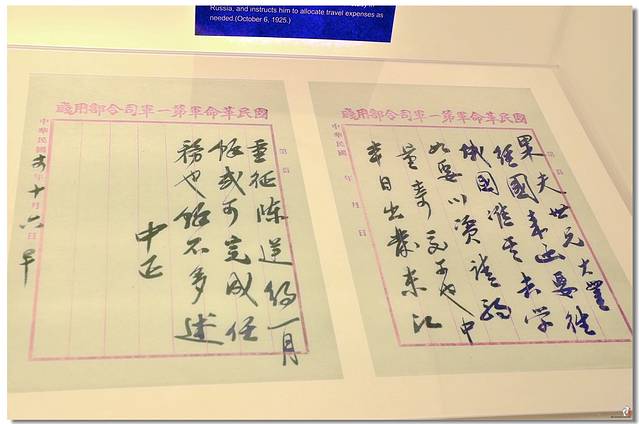 Russia, and instructs him to allocate travel expenses as
needed.(October 6, 1925.)
國民革命軍第一軍司令部用箋
第 頁
果夫世兄大鑒
經國來函要往
俄國准其去學
如要川資請酌
量寄之可也中
本日出發東江
中華民國 年 月 日
國民革命軍第一軍司令部用箋
第 頁
重征陳逆約一月
餘或可完成任
務也餘不多述
中正
中華民國 年十月六日 早